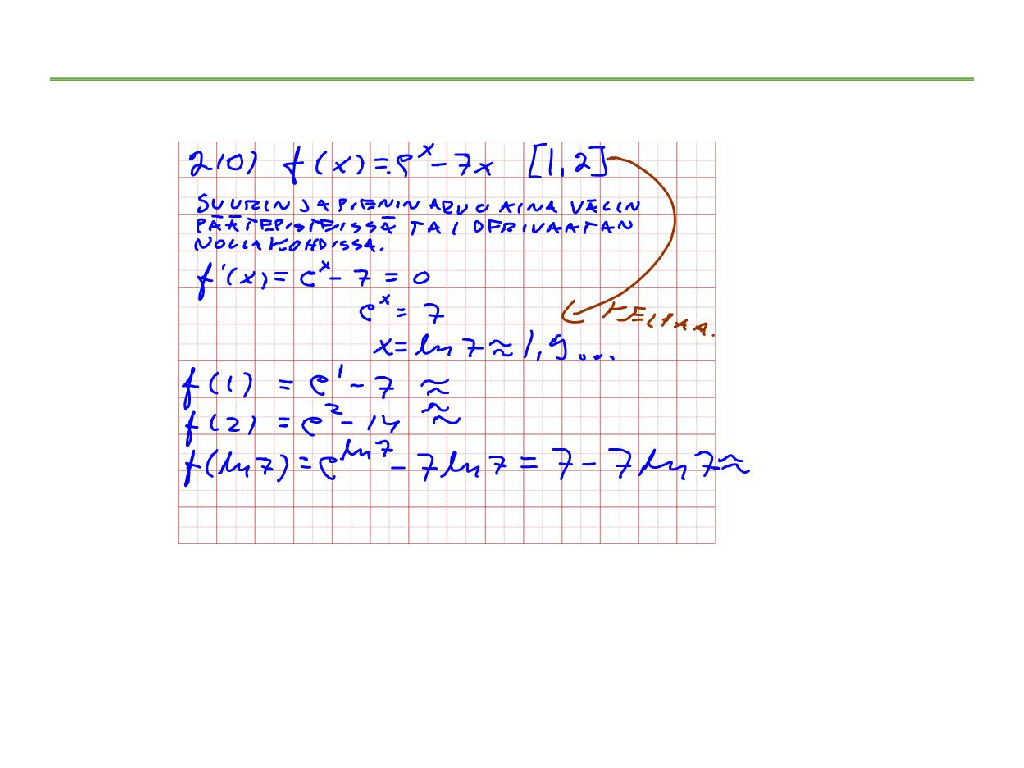 210) f(x) = e^x - 7x [1,2]
SUURIN JA PIENIN ARVO AINA VÄLIN
PÄÄTEPISTEISSÄ TAI DERIVAATAN
NOLLAKOHDISSA.
f'(x) = e^x - 7 = 0
e^x = 7
KELPAA.
x = ln 7 ≈ 1,9...
f(1) = e^1 - 7 ≈
f(2) = e^2 - 14 ≈
f(ln 7) = e^ln 7 - 7 ln 7 = 7 - 7 ln 7 ≈